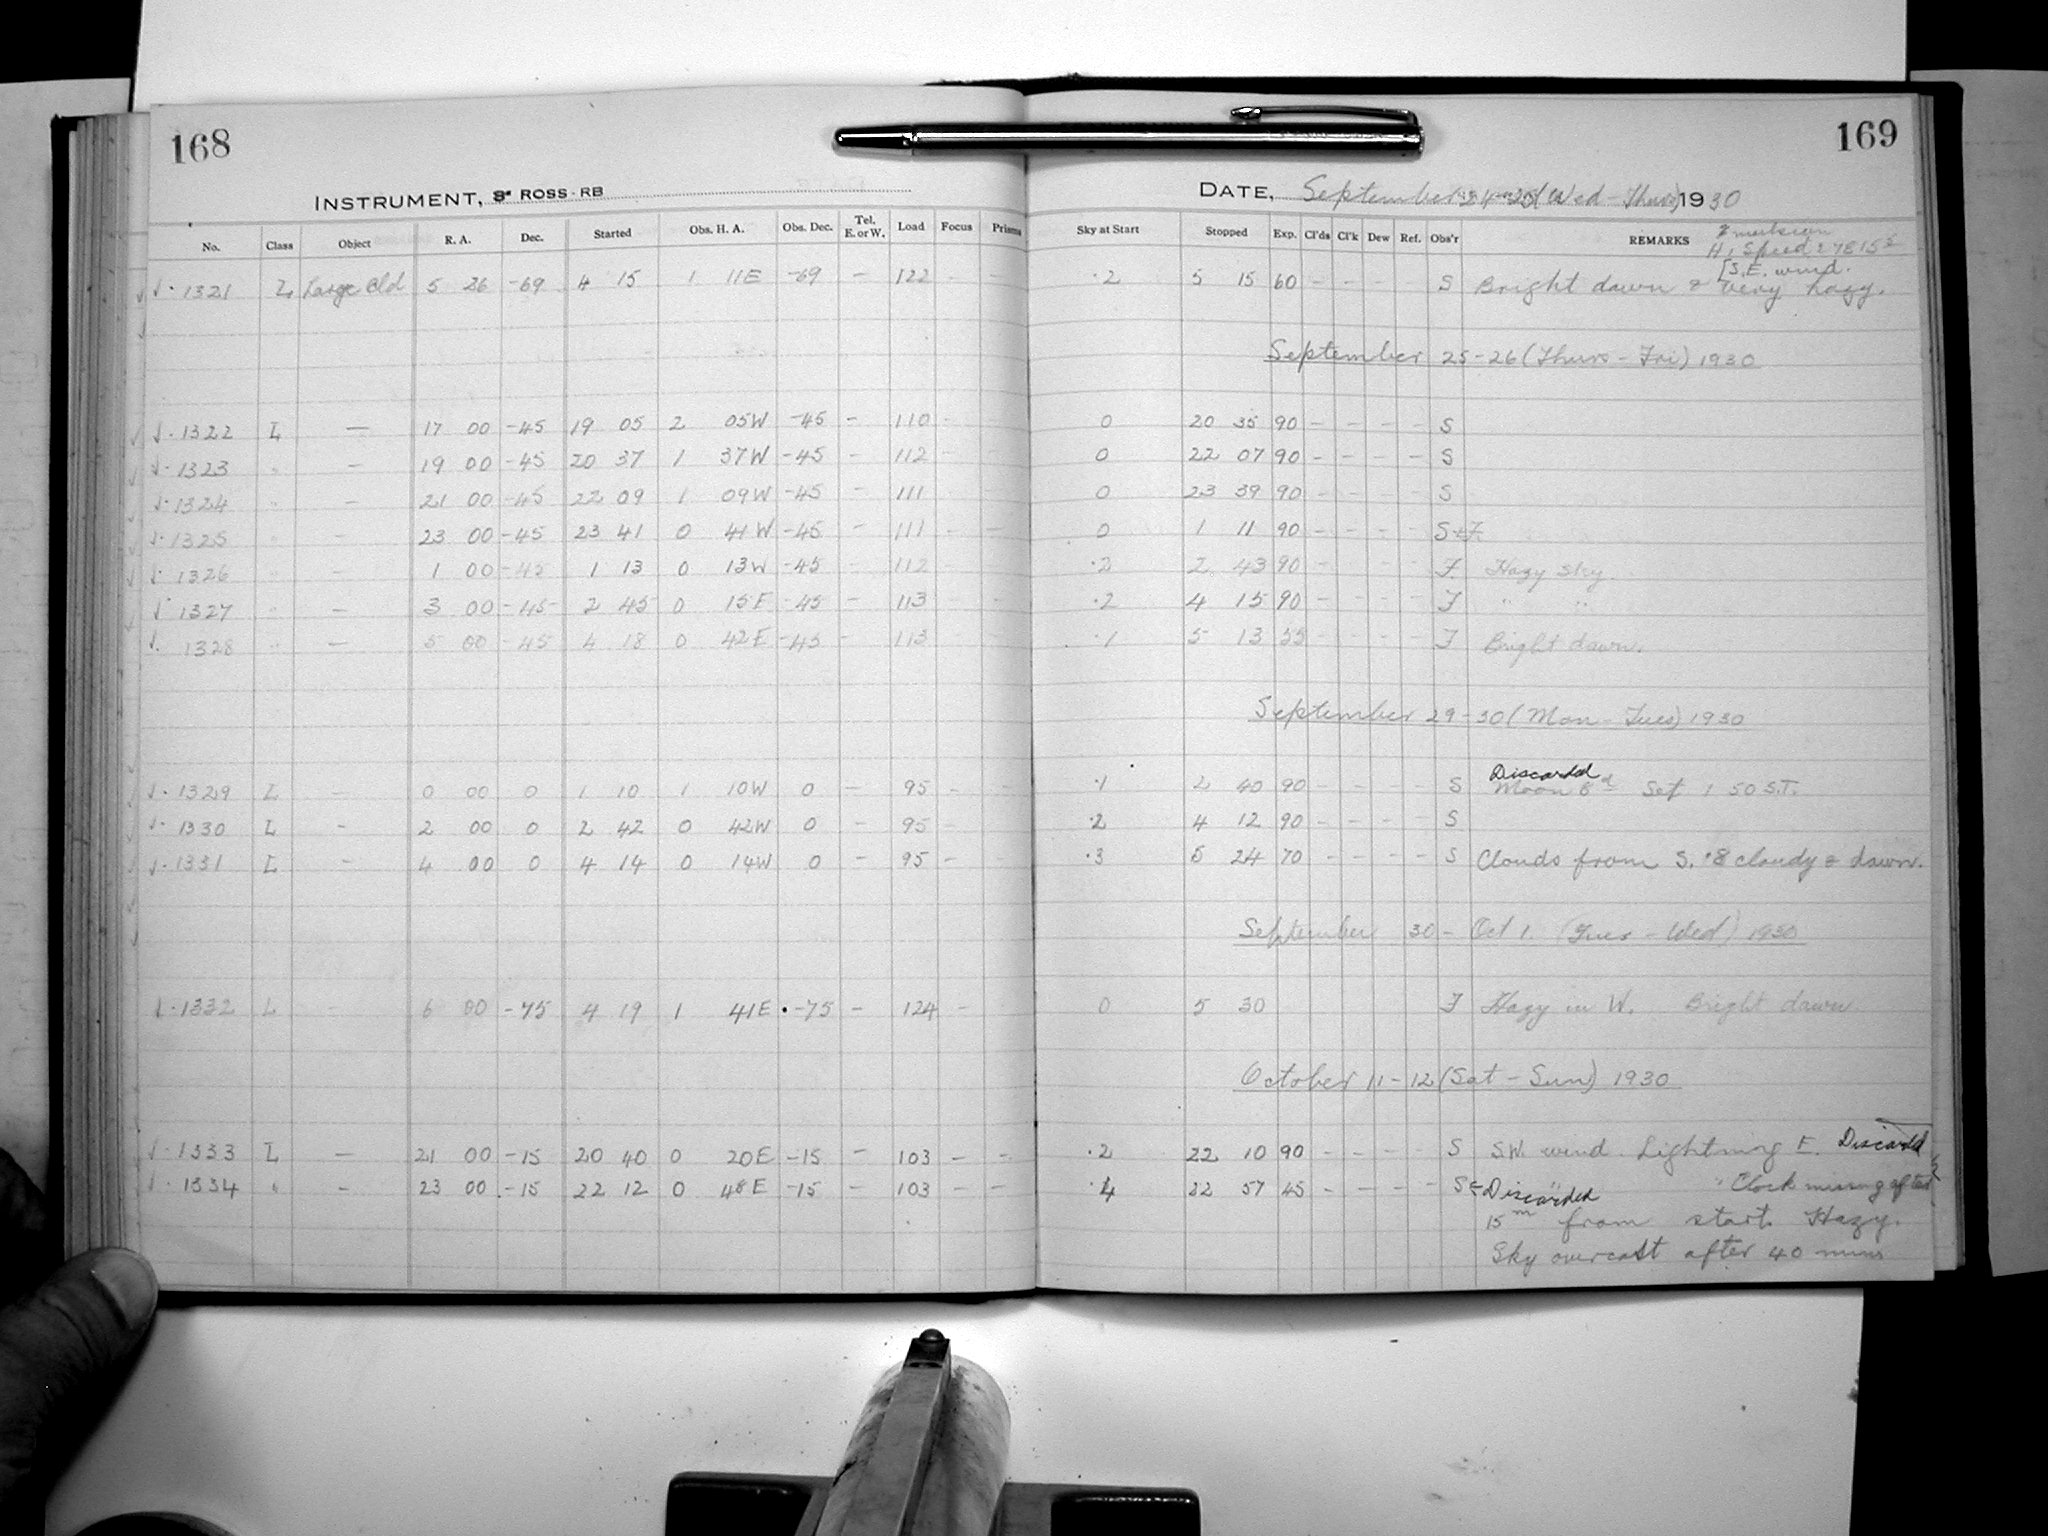 168
169
INSTRUMENT, 3" ROSS-RB
DATE, September 24-25 (Wed-Thurs) 1930
No. Class Object R. A. Dec. Started Obs. H. A. Obs. Dec. Tel. E. or W. Load Focus Prisms Sky at Start Stopped Exp. Cl'ds Cl'k Dew Ref. Obs'r REMARKS
Hi Speed 27815
[S.E. wind.
√·1321 L Large Cld 5 26 -69 4 15 1 11E -69 – 122 – – ·2 5 15 60 – – – – S Bright dawn & very hazy.
September 25-26 (Thurs-Fri) 1930
√·1322 L — 17 00 -45 19 05 2 05W -45 – 110 – 0 20 35 90 – – – – S
√·1323 " – 19 00 -45 20 37 1 37W -45 – 112 – 0 22 07 90 – – – – S
√·1324 " – 21 00 -45 22 09 1 09W -45 – 111 – 0 23 39 90 – – – – S
√·1325 " – 23 00 -45 23 41 0 41W -45 – 111 – – 0 1 11 90 – – – – S+F
√·1326 " – 1 00 -45 1 13 0 13W -45 – 112 – ·2 2 43 90 – – – – F. Hazy sky.
√·1327 " – 3 00 -45 2 45 0 15E -45 – 113 – ·2 4 15 90 – – – – F " "
√·1328 " — 5 00 -45 4 18 0 42E -45 – 113 – ·1 5 13 55 – – – – F Bright dawn.
September 29-30 (Mon-Tues) 1930
Discarded
√·1329 L – 0 00 0 1 10 1 10W 0 – 95 – – ·1 2 40 90 – – – – S Moon 8d Set 1 50 S.T.
√·1330 L – 2 00 0 2 42 0 42W 0 – 95 – ·2 4 12 90 – – – – S
√·1331 L – 4 00 0 4 14 0 14W 0 – 95 – – ·3 5 24 70 – – – – S Clouds from S. ·8 cloudy & dawn.
September 30 - Oct 1. (Tues-Wed) 1930
√·1332 L – 6 00 -75 4 19 1 41E -75 – 124 – 0 5 30 F Hazy in W. Bright dawn
October 11-12 (Sat-Sun) 1930
√·1333 L — 21 00 -15 20 40 0 20E -15 – 103 – – ·2 22 10 90 – – – – S S.W. wind. Lightning E. Discarded
√·1334 " – 23 00 -15 22 12 0 48E -15 – 103 – – ·4 22 57 45 – – – – S Discarded " Clock missing after
15m from start. Hazy.
Sky overcast after 40 mins